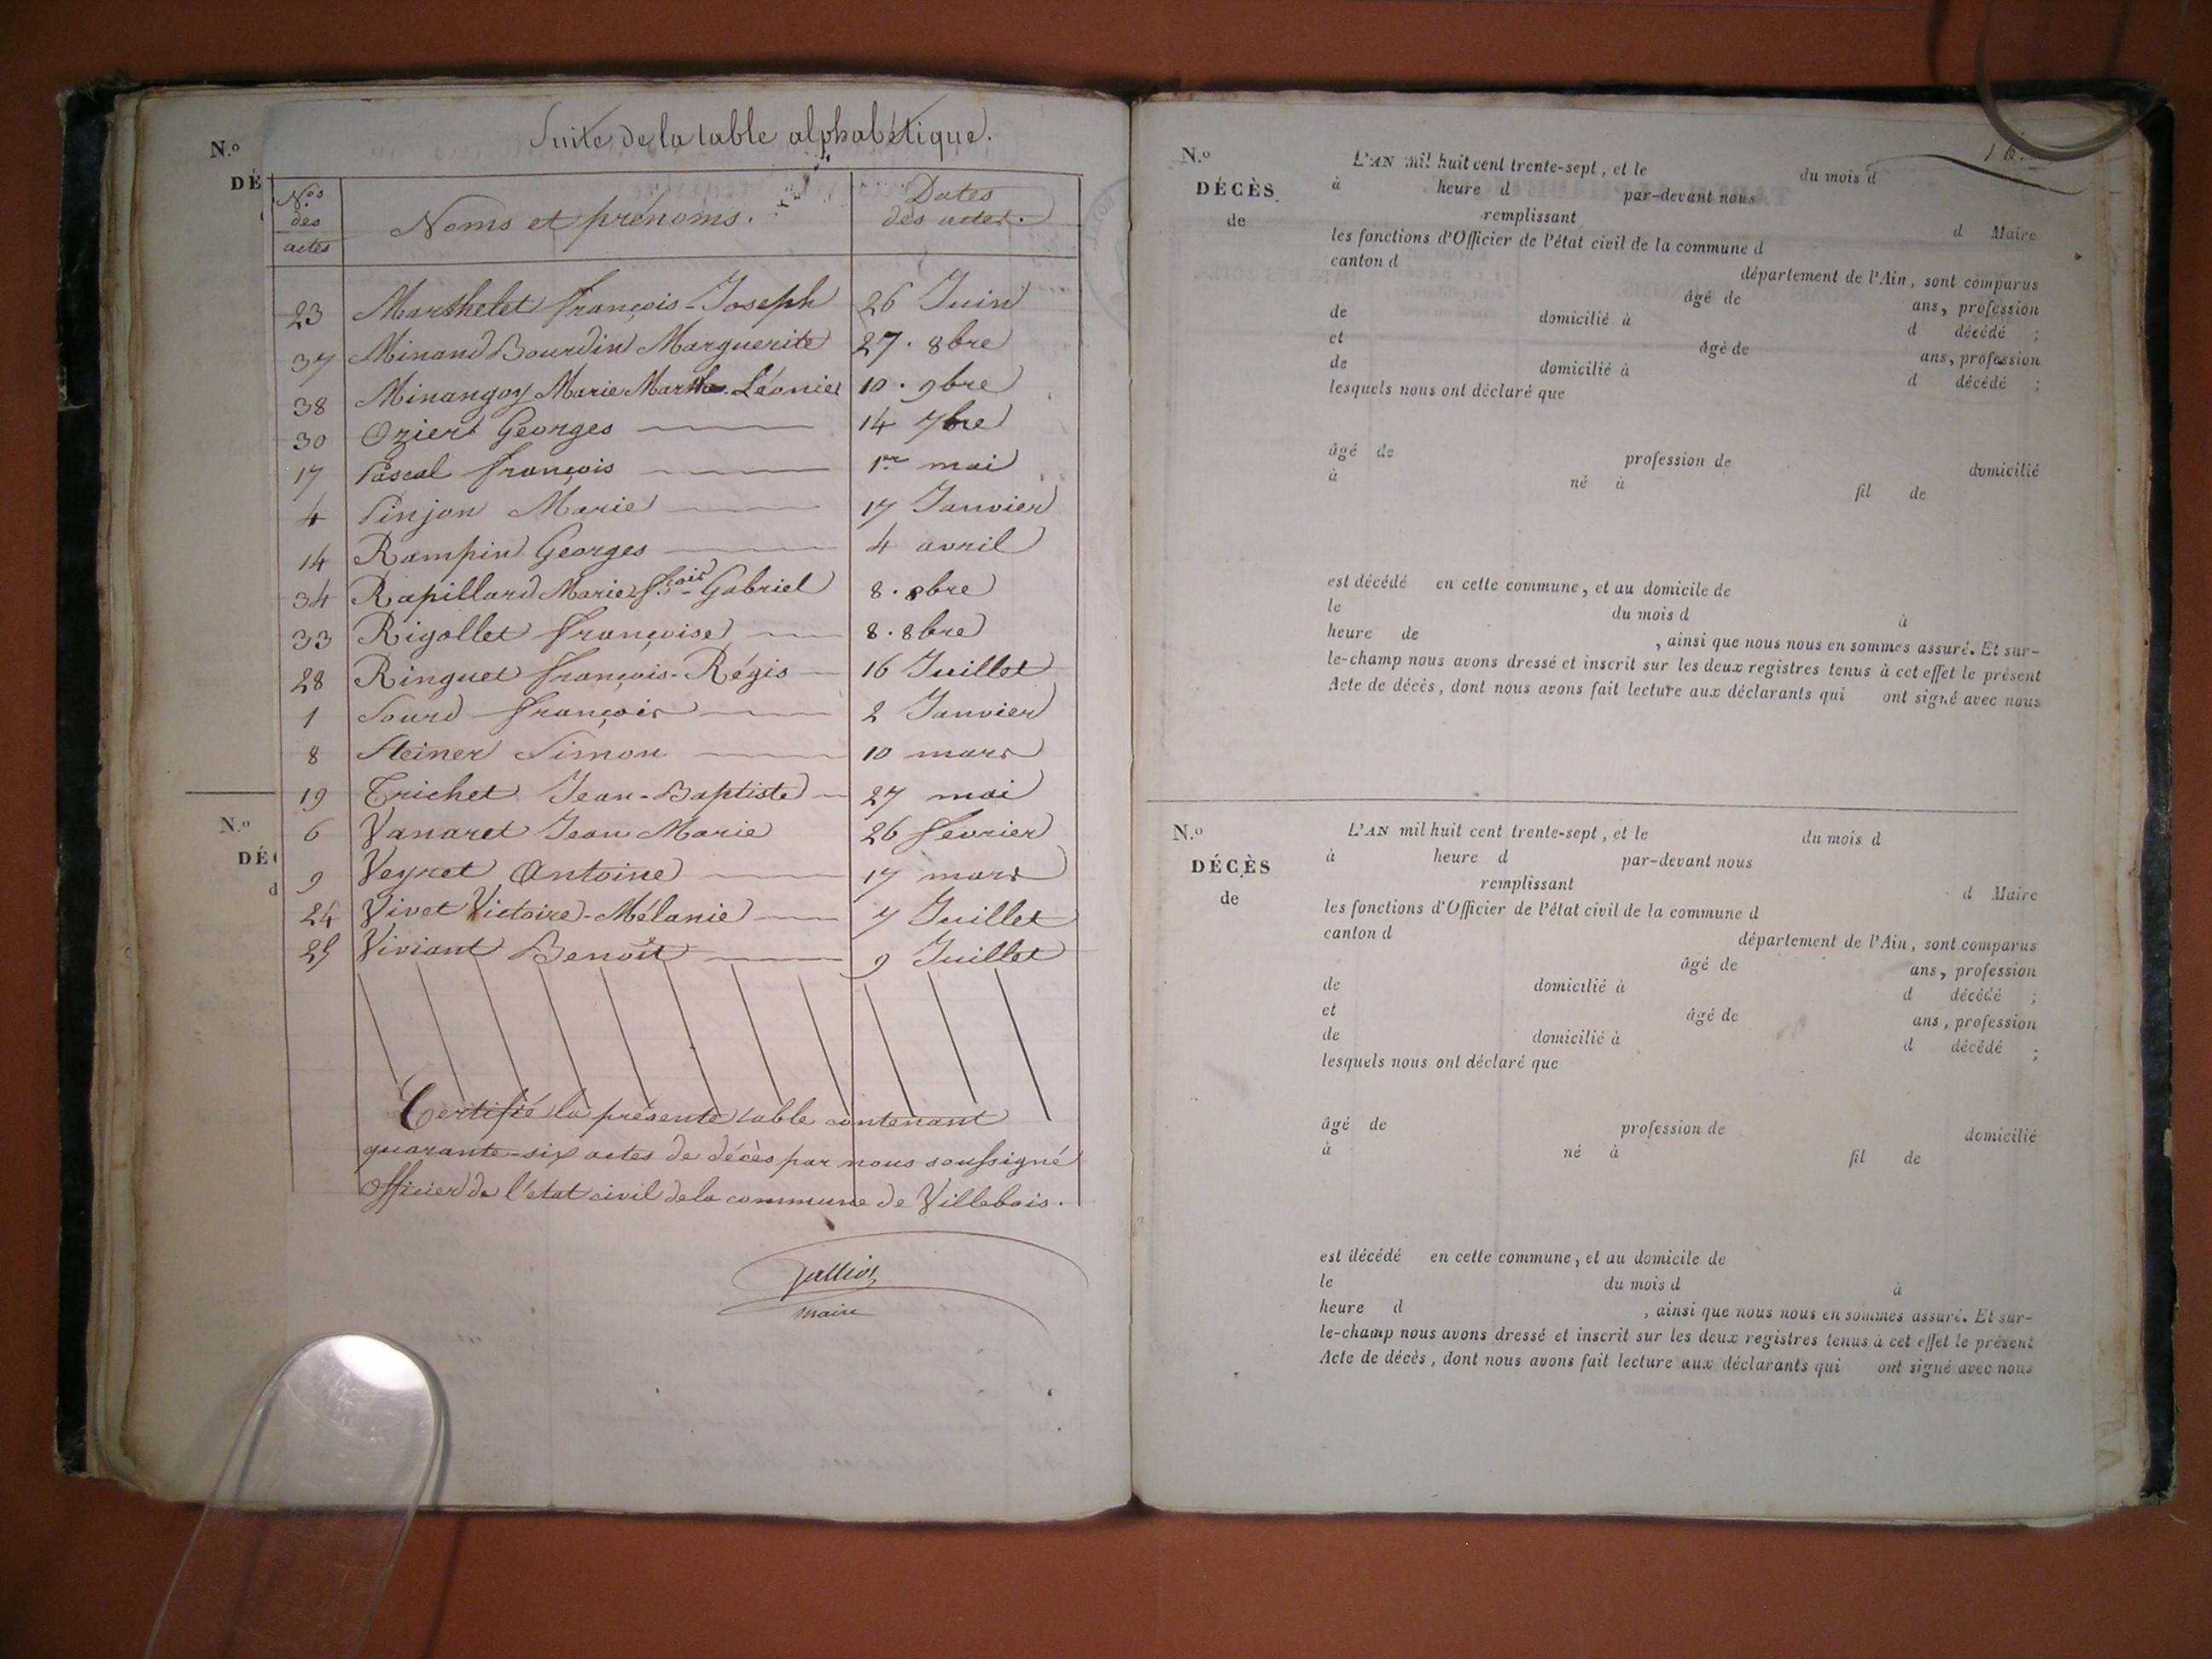 Suite de la table alphabétique.
N.º
DÉ
N.os des actes
Noms et prénoms.
Dates des actes.
23 Marthelet François-Joseph 26 Juin
37 Minand Bourdin Marguerite 27. 8bre
38 Minangoy Marie Marthe Léonie 10. 9bre
30 Ozier Georges 14 7bre
17 Pascal François 1er mai
4 Pinjon Marie 17 Janvier
14 Rampin Georges 4 avril
34 Rapillard Marie Fçois-Gabriel 8. 8bre
33 Rigollet Françoise 8. 8bre
28 Ringuet François-Régis 16 Juillet
1 Sourd François 2 Janvier
8 Steiner Simon 10 mars
19 Trichet Jean-Baptiste 27 mai
6 Vanaret Jean Marie 26 fevrier
9 Veyret Antoine 17 mars
24 Vivet Victoire-Mélanie 7 Juillet
25 Viviant Benoît 9 Juillet
N.º
DÉ
d
Certifié la présente table contenant
quarante-six actes de décès par nous soussigné
officier de l'etat civil de la commune de Villebois.
maire
N.º
DÉCÈS
de
L'AN mil huit cent trente-sept, et le du mois d
à heure d par-devant nous
remplissant d Maire
les fonctions d'Officier de l'état civil de la commune d
canton d département de l'Ain, sont comparus
âgé de ans, profession
de domicilié à d décédé ;
et âgé de ans, profession
de domicilié à d décédé ;
lesquels nous ont déclaré que
âgé de profession de domicilié
à né à fil de
est décédé en cette commune, et au domicile de
le du mois d à
heure de , ainsi que nous nous en sommes assuré. Et sur-
le-champ nous avons dressé et inscrit sur les deux registres tenus à cet effet le présent
Acte de décès, dont nous avons fait lecture aux déclarants qui ont signé avec nous
N.º
DÉCÈS
de
L'AN mil huit cent trente-sept, et le du mois d
à heure d par-devant nous
remplissant d Maire
les fonctions d'Officier de l'état civil de la commune d
canton d département de l'Ain, sont comparus
âgé de ans, profession
de domicilié à d décédé ;
et âgé de ans, profession
de domicilié à d décédé ;
lesquels nous ont déclaré que
âgé de profession de domicilié
à né à fil de
est décédé en cette commune, et au domicile de
le du mois d à
heure d , ainsi que nous nous en sommes assuré. Et sur-
le-champ nous avons dressé et inscrit sur les deux registres tenus à cet effet le présent
Acte de décès, dont nous avons fait lecture aux déclarants qui ont signé avec nous